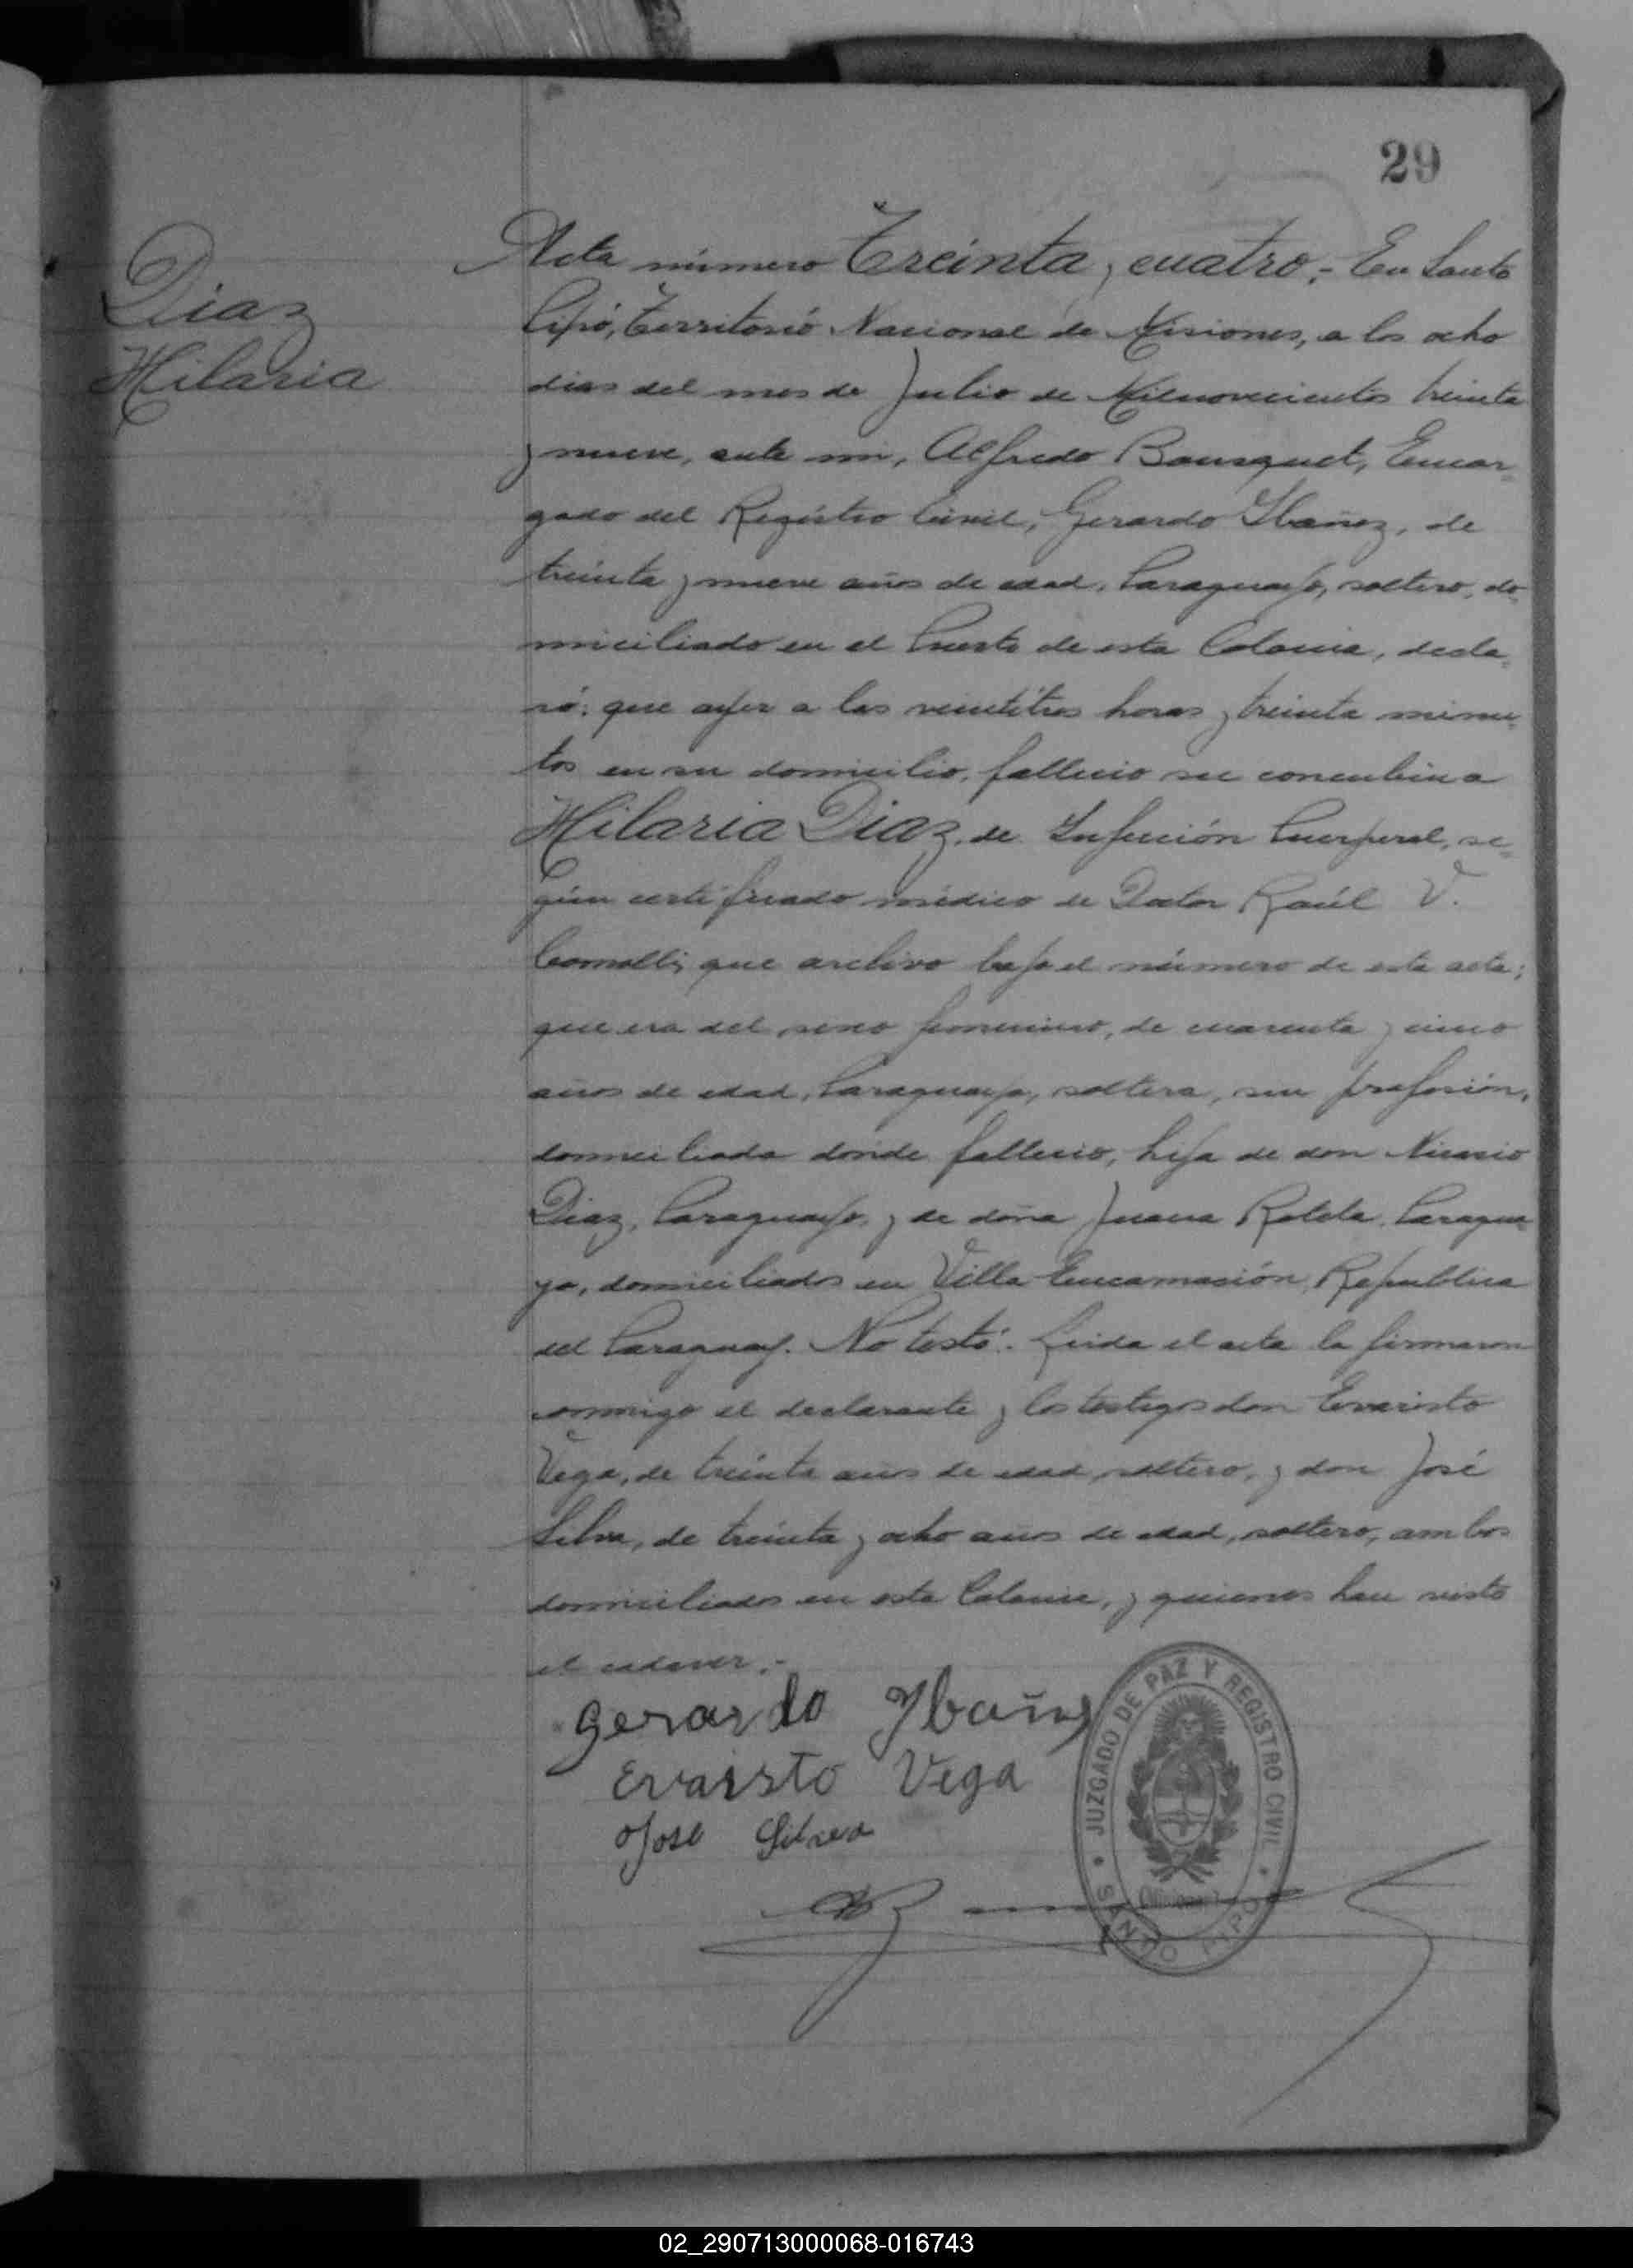 29
Diaz
Hilaria
Acta número Treinta y cuatro.- En Santo
Pipó, Territorio Nacional de Misiones, a los ocho
dias del mes de Julio de Milnovecientos treinta
y nueve, ante mi, Alfredo Bousquet, Encar-
gado del Registro Civil, Gerardo Ybañez, de
treinta y nueve años de edad, Paraguayo, soltero, do-
miciliado en el Puerto de esta Colonia, decla-
ró: que ayer a las veintitres horas y treinta minu-
tos en su domicilio, fallecio su concubina
Hilaria Diaz, de Infección Puerperal, se-
gún certificado médico de Doctor Raúl V.
Comolli, que archivo bajo el número de esta acta;
que era del sexo femenino, de cuarenta y cinco
años de edad, Paraguaya, soltera, sin profesión,
domiciliada donde fallecio, hija de don Nicasio
Diaz, Paraguayo, y de doña Juana Rolela, Paragua-
ya, domiciliados en Villa Encarnasión, Republica
del Paraguay. No testó. Leida el acta la firmaron
conmigo el declarante y los testigos don Evaristo
Vega, de treinta años de edad, soltero, y don José
Silva, de treinta y ocho años de edad, soltero, ambos
domiciliados en esta Colonia, y quienes han visto
el cadaver.-
Gerardo Ybañez
Evaristo Vega
José Silva
JUZGADO DE PAZ Y REGISTRO CIVIL
SANTO PIPÓ
02_290713000068-016743